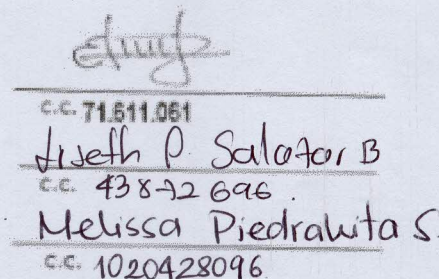 c.c. 71.611.061
Liseth P. Salazar B
c.c. 43872696
Melissa Piedrahita S.
c.c. 1020428096